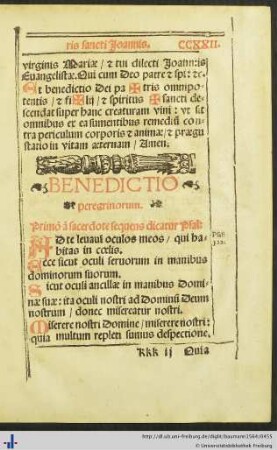 ris sancti Joannis. CCXXII.
virginis Mariæ / & tui dilecti Joannis
Euangelistæ. Qui cum Deo patre & spi: &c.
Et benedictio Dei pa ✠ tris omnipo-
tentis / & fi ✠ lii / & spiritus ✠ sancti de-
scendat super hanc creaturam vini: vt sit
omnibus et ea sumentibus remediũ con-
tra periculum corporis & animæ / & prægu
statio in vitam æternam / Amen.
BENEDICTIO
peregrinorum.
Primò à sacerdote sequens dicatur Psal:
AD te leuaui oculos meos / qui ha-
bitas in cœlis.
Ecce sicut oculi seruorum in manibus
dominorum suorum.
Sicut oculi ancillæ in manibus Domi-
næ suæ: ita oculi nostri ad Dominũ Deum
nostrum / donec misereatur nostri.
Miserere nostri Domine / miserere nostri:
quia multum repleti sumus despectione,
KKk ij Quia
http://dl.ub.uni-freiburg.de/diglit/baumann1564/0455
© Universitätsbibliothek Freiburg